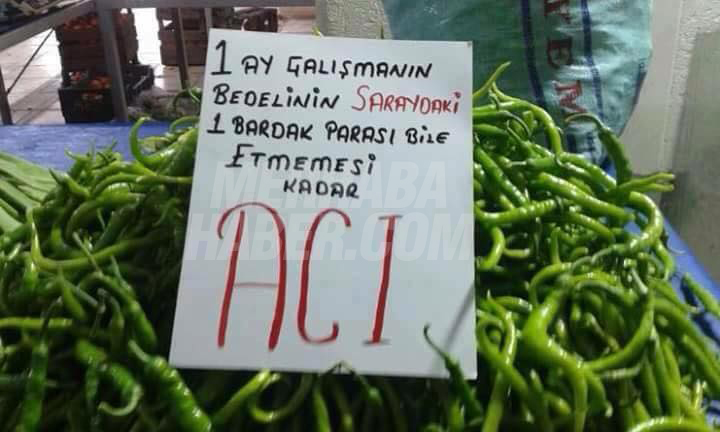 1 AY ÇALIŞMANIN
BEDELİNİN SARAYDAKİ
1 BARDAK PARASI BİLE
ETMEMESİ
KADAR
ACI
MERHABA
HABER.COM